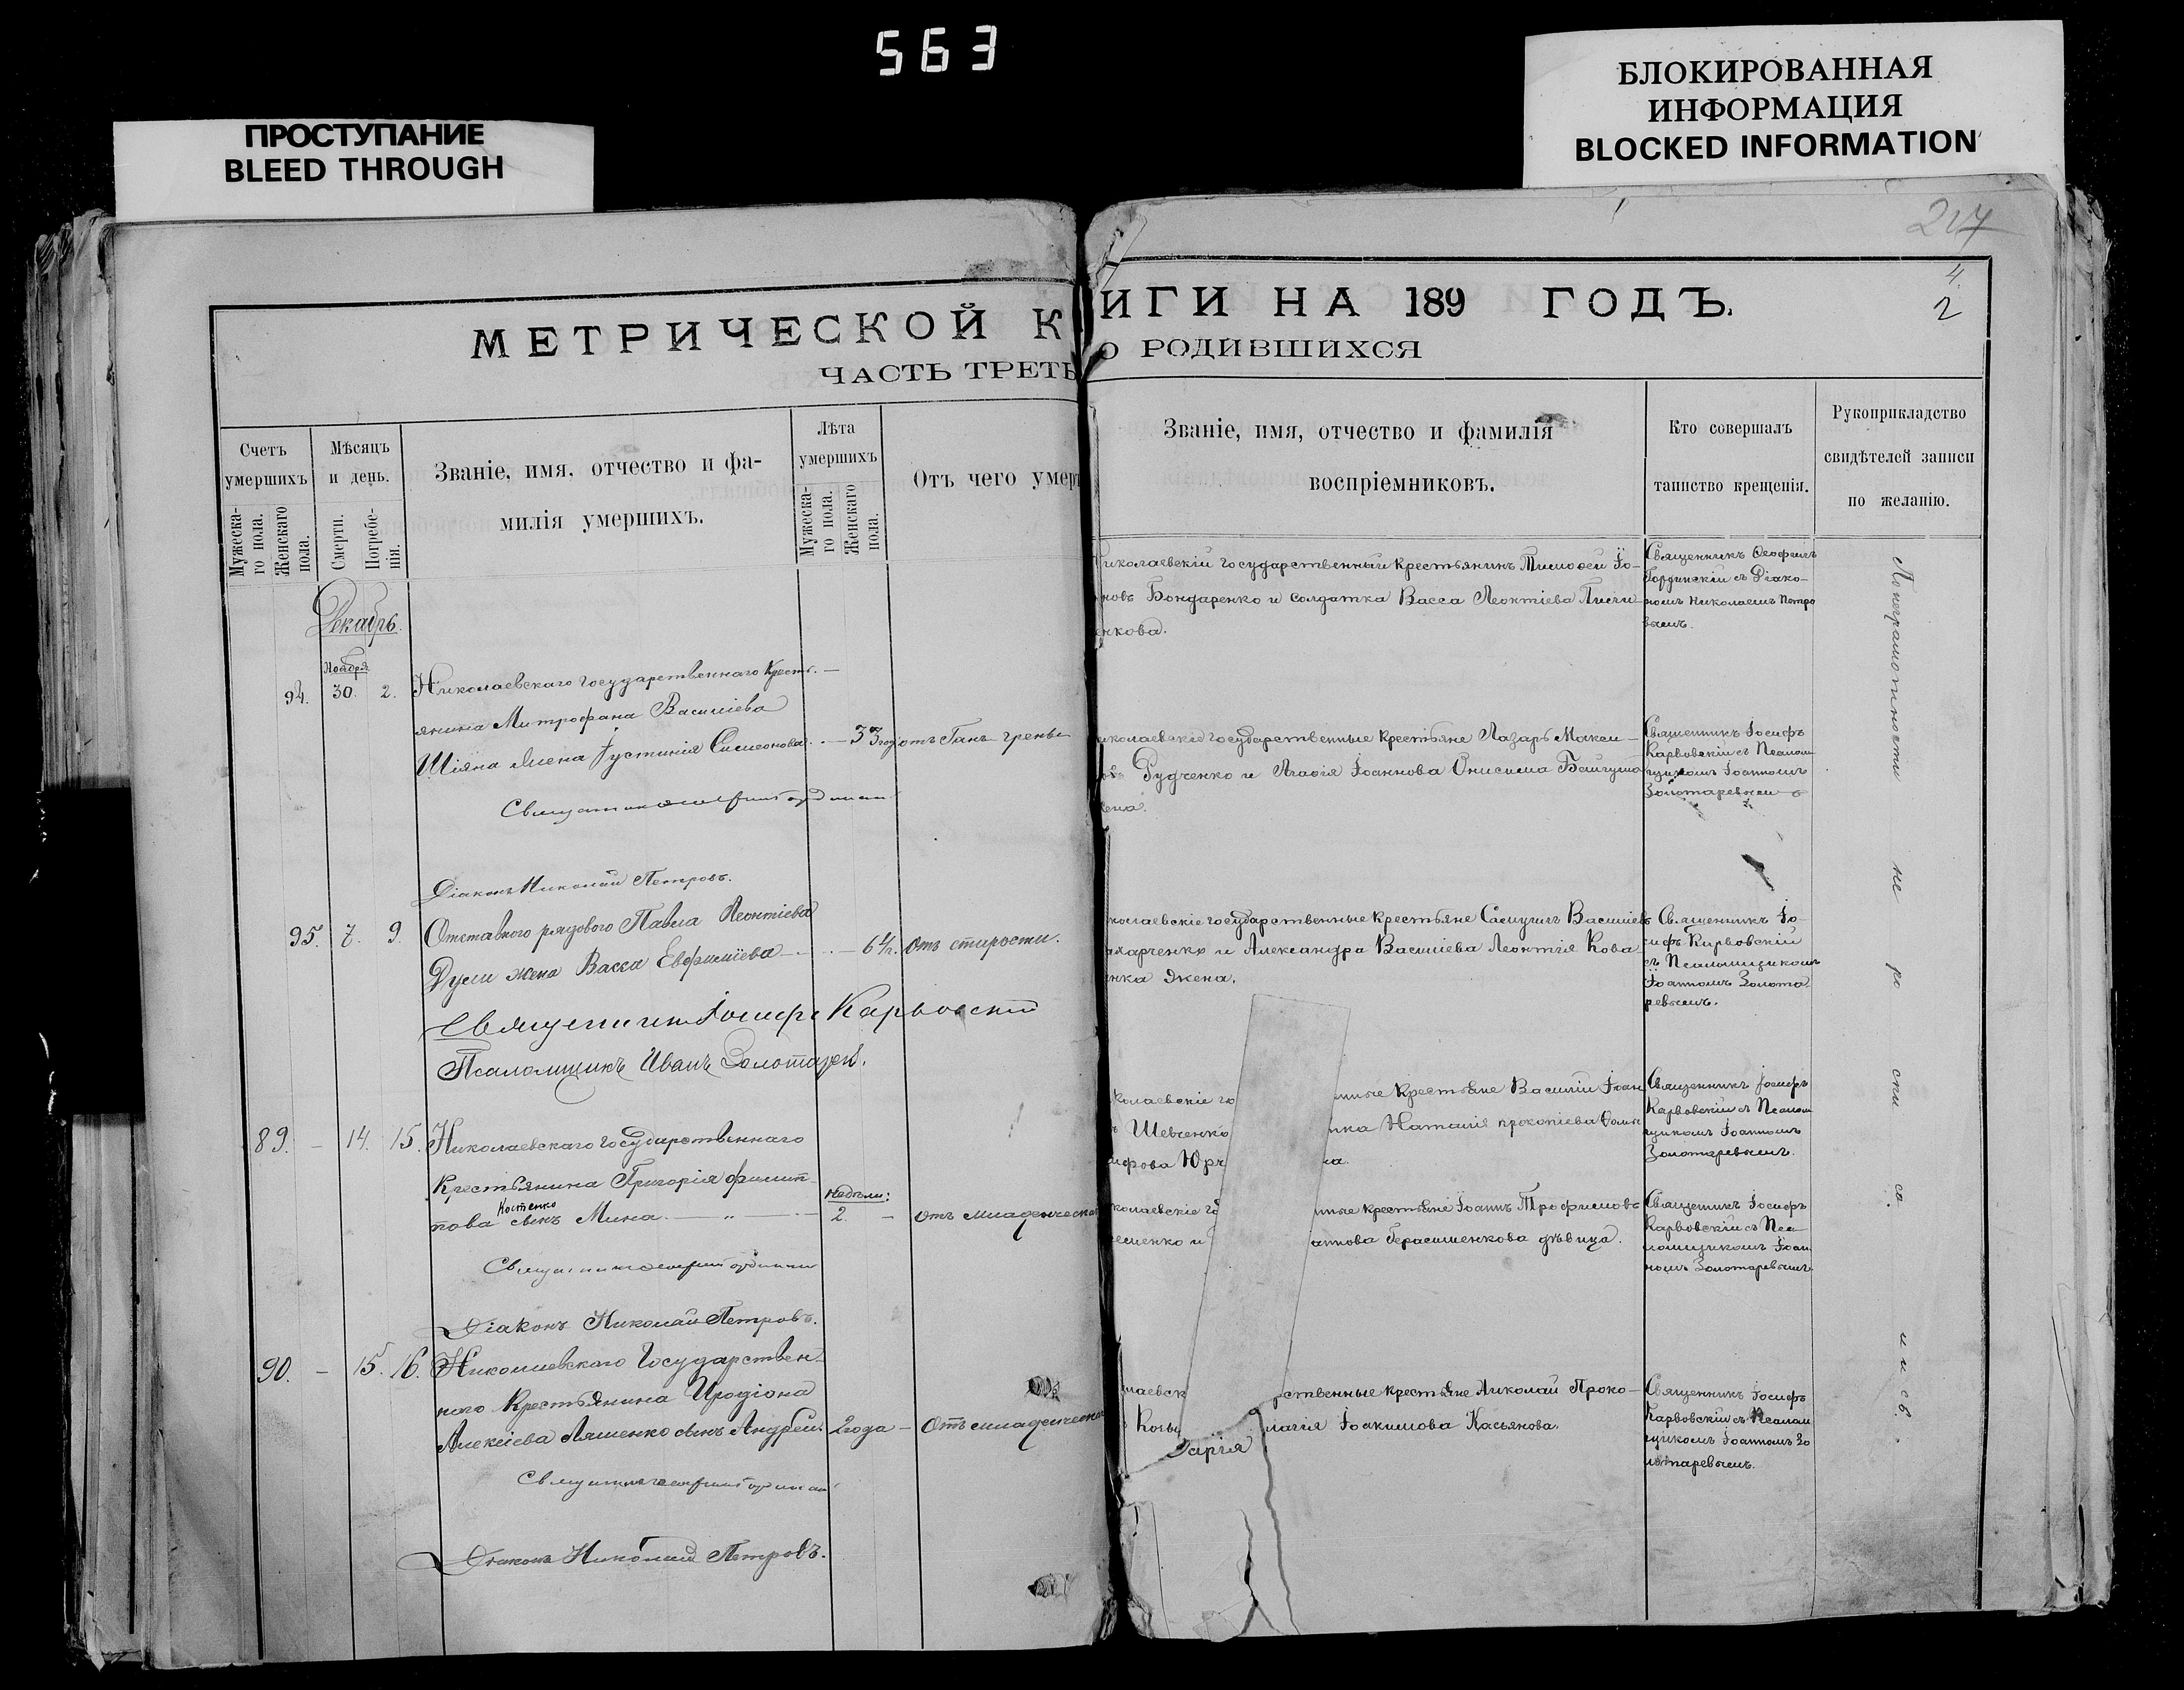 563
ПРОСТУПАНИЕ
BLEED THROUGH
БЛОКИРОВАННАЯ
ИНФОРМАЦИЯ
BLOCKED INFORMATION
МЕТРИЧЕСКОЙ К
ЧАСТЬ ТРЕТЬ
Счетъ умершихъ
Мужеска-го пола.
Женскаго пола.
Мѣсяцъ и день.
Смерти.
Погребе-нія.
Званіе, имя, отчество и фа-
милія умершихъ.
Лѣта умершихъ
Мужеска-го пола.
Женскаго пола.
Отъ чего умер
Декабрь.
Ноября
94. 30. 2. Николаевскаго государственнаго Кресть-
янина Митрофана Василіева
Шіяна жена Іустинія Симеонова 33 год отъ Ган-грены
Діаконъ Николай Петровъ.
95. 7. 9. Отставного рядового Павла Леонтіева
жена Васса Евфиміева 61/2. Отъ старости.
Священникъ Іосифъ Карвовскій
Псаломщикъ Иванъ Золотаревъ.
89. - 14. 15. Николаевскаго государственнаго
Крестьянина Григорія Филип-
Костенко
пова сынъ Мина Недѣли: 2. - Отъ младенческ
Діаконъ Николай Петровъ.
90. - 15. 16. Николаевскаго Государствен-
наго Крестьянина Иродіона
Алексіева Ляшенко сынъ Андрей. 2 года - Отъ младенческ
Діаконъ Николай Петровъ.
217
ИГИ НА 189 ГОДЪ.
О РОДИВШИХСЯ
4
2
Званіе, имя, отчество и фамилія
воспріемниковъ.
Кто совершалъ
таинство крещенія.
Рукоприкладство
свидѣтелей записи
по желанію.
иколаевскій государственный крестьянинъ Тимоѳей Іо-
новъ Бондаренко и солдатка Васса Леонтіева
енкова.
Священникъ Ѳеофилъ
Гординскій съ Діако-
номъ Николаемъ Петро
вымъ.
иколаевскіе государственные крестьяне Лазарь Макси-
Рудченко и Агаѳія Іоаннова Онисима
жена.
Священникъ Іосифъ
Карвовскій съ Псалом
щикомъ Іоанномъ
Золотаревымъ
колаевскіе государственные крестьяне Самуилъ Василіевъ
харченко и Александра Василіева Леонтія Кова
енка жена.
Священникъ Іо-
сифъ Карвовскій
съ Псаломщикомъ
Іоанномъ Золота
ревымъ.
колаевскіе го нные крестьяне Василій Іоан
ъ Шевченко нка Наталія Прокопіева
ифова Юрч на.
Священникъ Іосифъ
Карвовскій съ Псалом
щикомъ Іоанномъ
Золотаревымъ.
колаевскіе го нные крестьяне Іоаннъ Трофимовъ
еменко и аннова Герасименкова дѣвица.
Священникъ Іосифъ
Карвовскій съ Пса
ломщикомъ Іоан
номъ Золотаревымъ
лаевск рственные крестьяне Николай Проко-
Марія Іоакимова Касьянова.
Дарія
Священникъ Іосифъ
Карвовскій съ Псалом
щикомъ Іоанномъ Зо
лотаревымъ.
По неграмотности не ро спи са